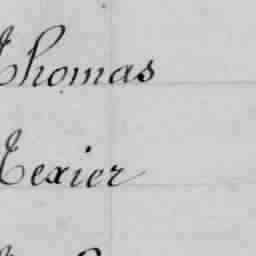 Thomas
Texier